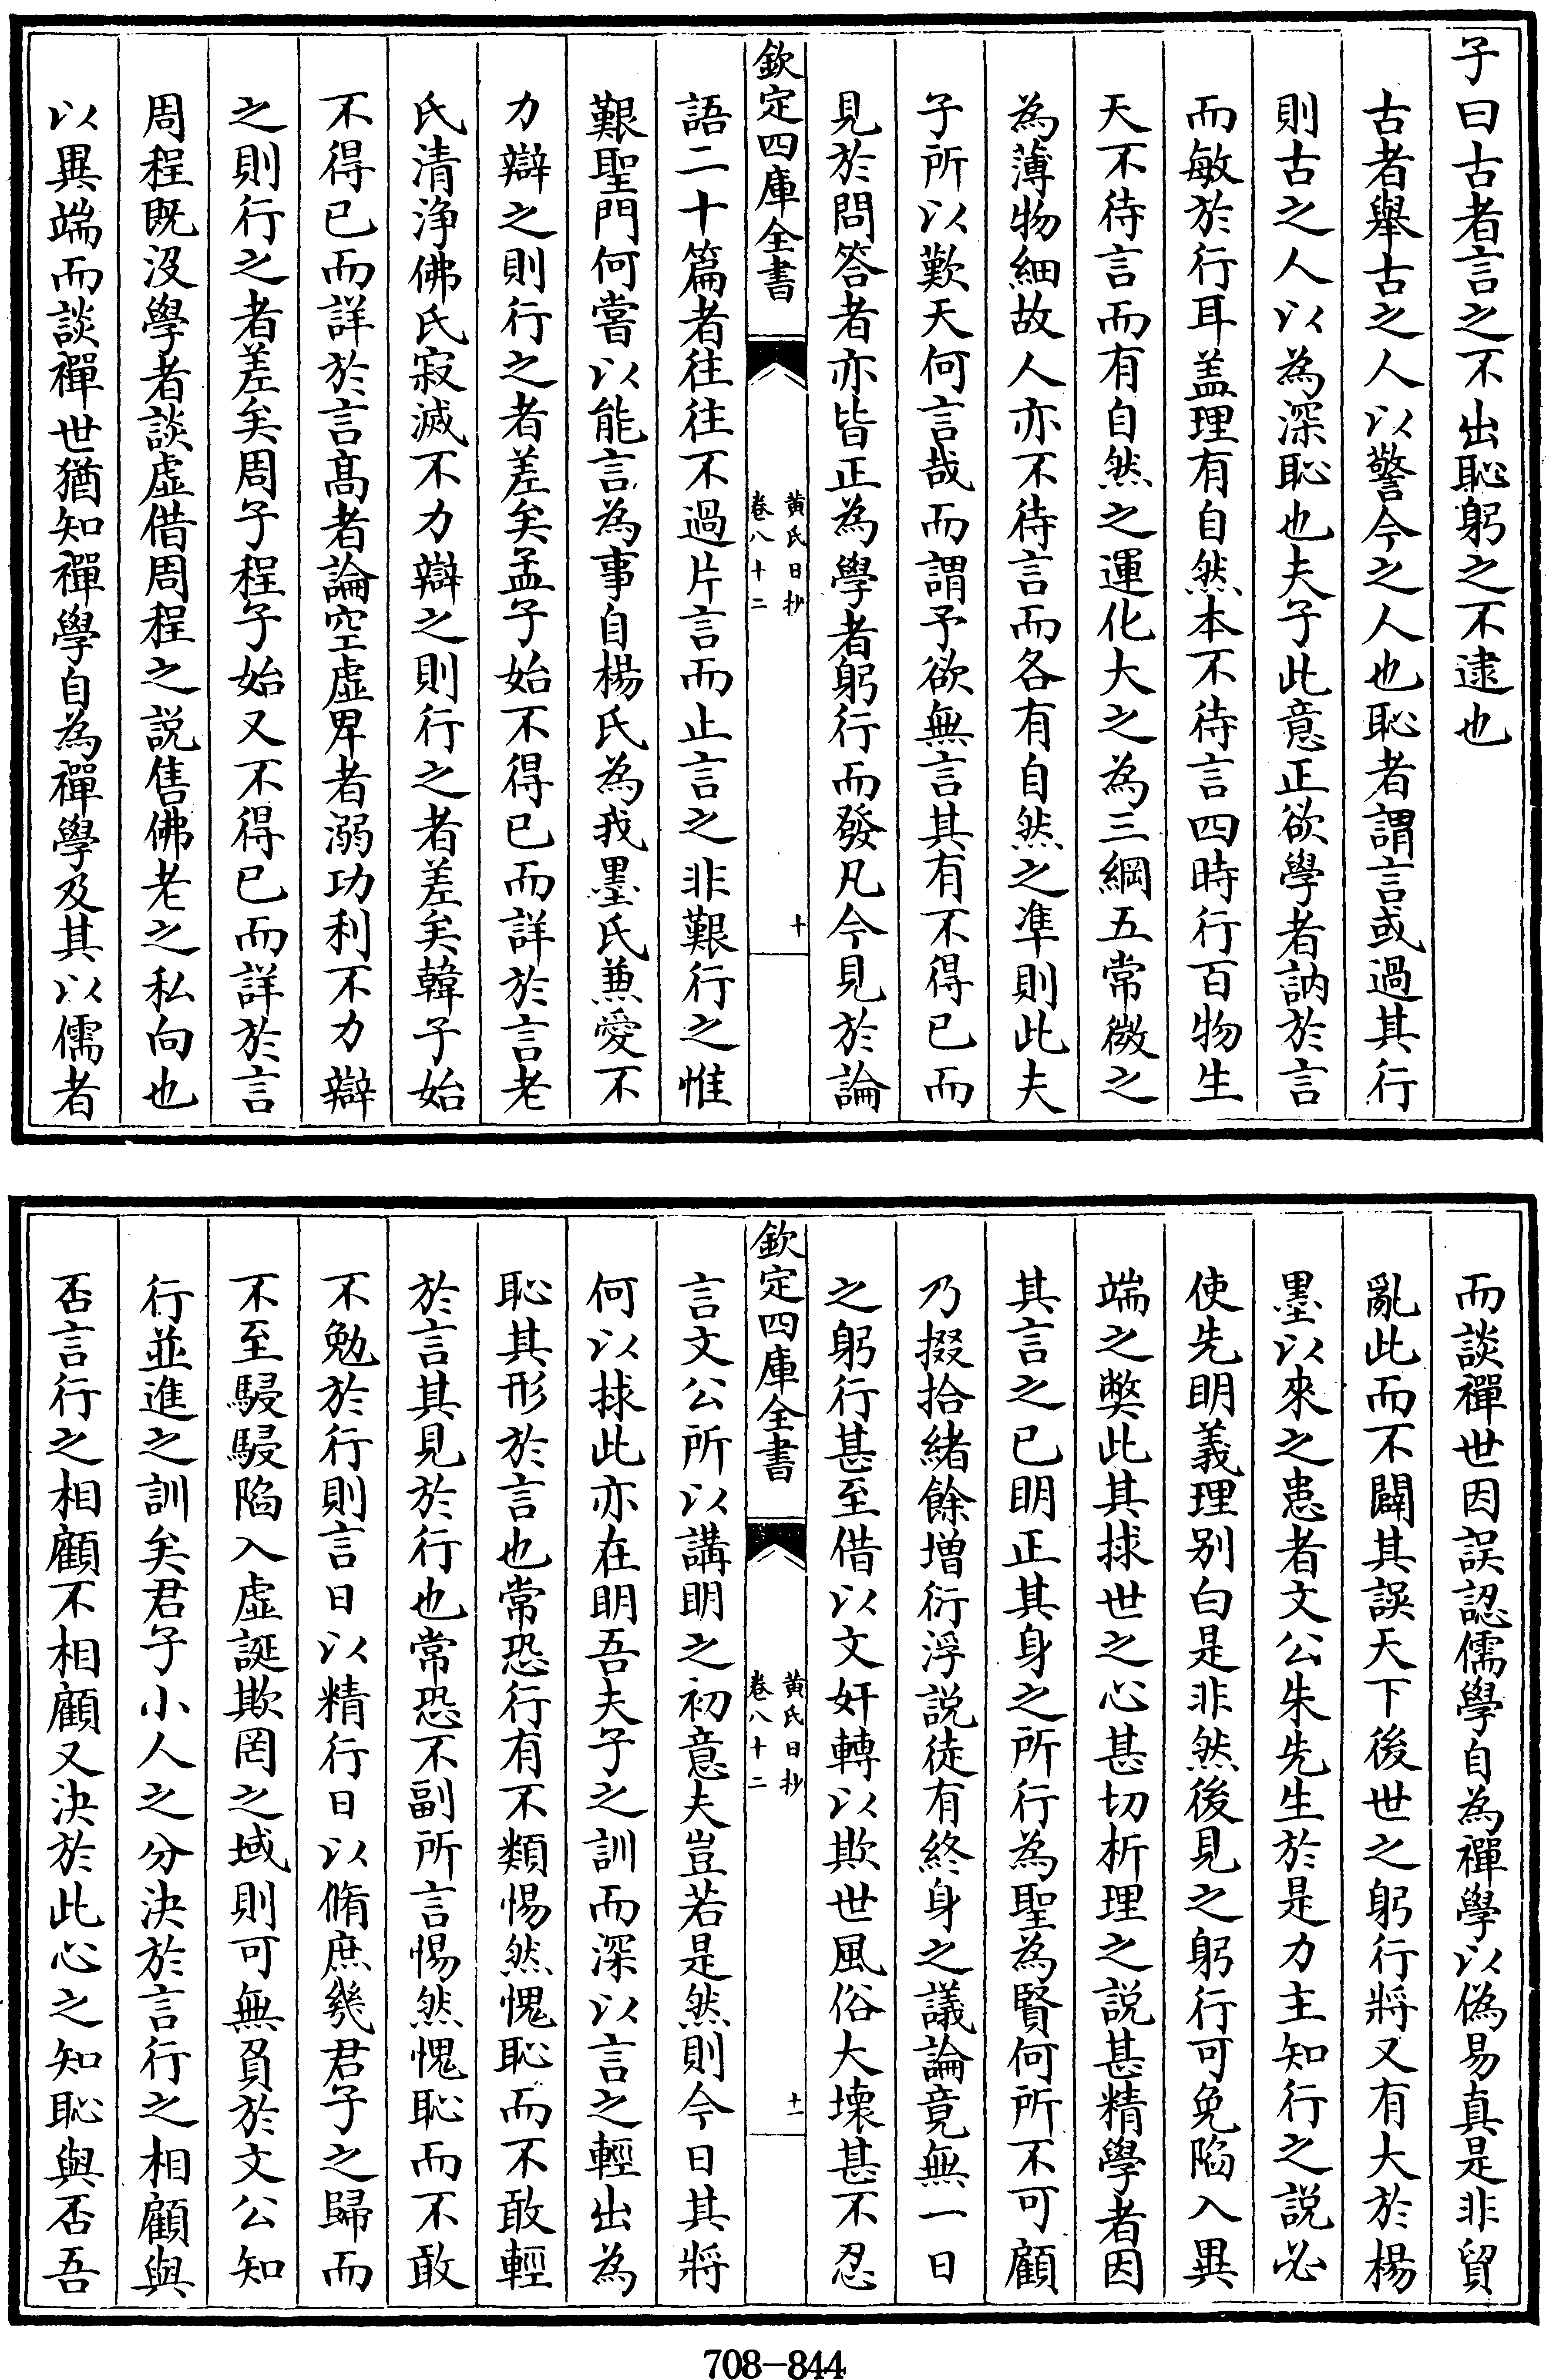 子曰古者言之不出恥躬之不逮也
古者舉古之人以警今之人也恥者謂言或過其行
則古之人以為深恥也夫子此意正欲學者訥於言
而敏於行耳盖理有自然本不待言四時行百物生
天不待言而有自然之運化大之為三綱五常微之
為薄物細故人亦不待言而各有自然之凖則此夫
子所以歎天何言哉而謂予欲無言其有不得已而
見於問答者亦皆正為學者躬行而發凡今見於論
欽定四庫全書
黄氏日抄
卷八十二
十
語二十篇者往往不過片言而止言之非艱行之惟
艱聖門何嘗以能言為事自楊氏為我墨氏兼愛不
力辯之則行之者差矣孟子始不得已而詳於言老
氏清浄佛氏寂滅不力辯之則行之者差矣韓子始
不得已而詳於言髙者論空虛卑者溺功利不力辯
之則行之者差矣周子程子始又不得已而詳於言
周程既沒學者談虛借周程之說售佛老之私向也
以異端而談禪世猶知禪學自為禪學及其以儒者
而談禪世因誤認儒學自為禪學以偽易真是非貿
亂此而不闢其誤天下後世之躬行將又有大於楊
墨以來之患者文公朱先生於是力主知行之說必
使先明義理别白是非然後見之躬行可免陷入異
端之弊此其捄世之心甚切析理之說甚精學者因
其言之已明正其身之所行為聖為賢何所不可顧
乃掇拾緒餘增衍浮說徒有終身之議論竟無一日
之躬行甚至借以文奸轉以欺世風俗大壊甚不忍
欽定四庫全書
黄氏日抄
卷八十二
十一
言文公所以講明之初意夫豈若是然則今日其將
何以捄此亦在明吾夫子之訓而深以言之輕出為
恥其形於言也常恐行有不類惕然愧恥而不敢輕
於言其見於行也常恐不副所言惕然愧恥而不敢
不勉於行則言日以精行日以脩庶幾君子之歸而
不至駸駸陷入虛誕欺罔之域則可無負於文公知
行並進之訓矣君子小人之分決於言行之相顧與
否言行之相顧不相顧又決於此心之知恥與否吾
708-844